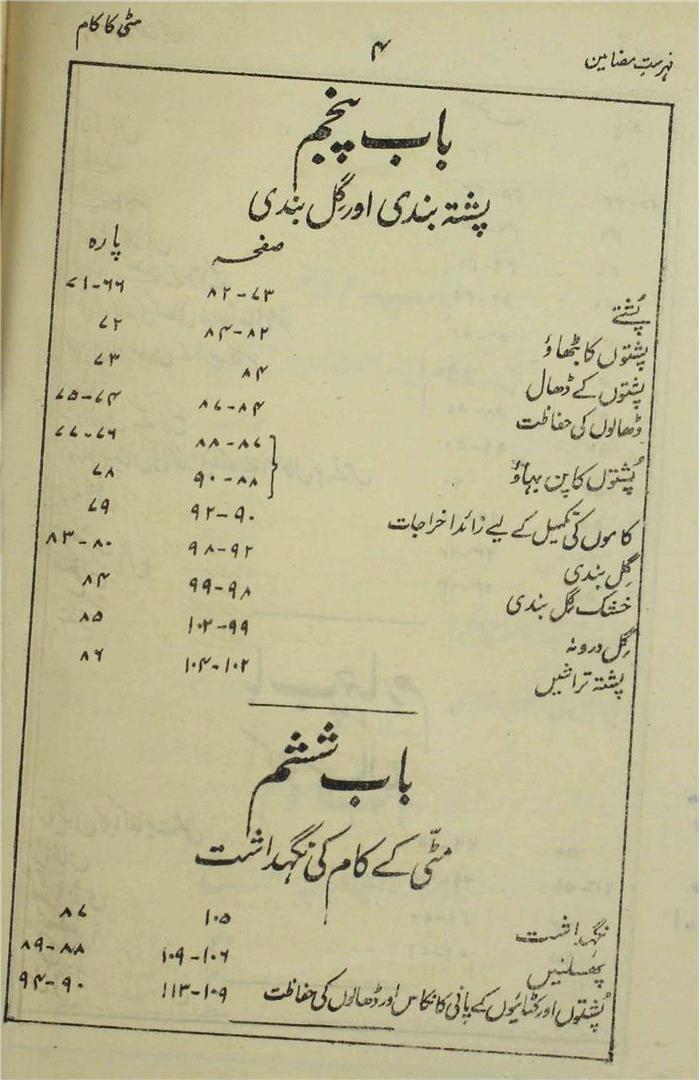 فہرستِ مضامین ۴ مٹی کا کام
باب پنجم
پشتہ بندی اور گِل بندی
صفحہ پارہ
پُشتے ۷۳-۸۲ ۶۶-۷۱
پشتوں کا بٹھاؤ ۸۲-۸۴ ۷۲
پشتوں کے ڈھال ۸۴ ۷۳
ڈھالوں کی حفاظت ۸۴-۸۶ ۷۴-۷۵
پُشتوں کا پن بہاؤ ۸۶-۸۸ ۷۶-۷۷
۸۸-۹۰ ۷۸
کاموں کی تکمیل کے لیے زائد اخراجات ۹۰-۹۲ ۷۹
گِل بندی ۹۲-۹۸ ۸۰-۸۳
خشک گِل بندی ۹۸-۹۹ ۸۴
گِل درونہ ۹۹-۱۰۲ ۸۵
پشتہ تراشیں ۱۰۲-۱۰۴ ۸۶
باب ششم
مٹّی کے کام کی نگہداشت
نگہداشت ۱۰۵ ۸۷
پھسلنیں ۱۰۶-۱۰۹ ۸۸-۸۹
پُشتوں اور کٹائیوں کے پانی کا نکاس اور ڈھالوں کی حفاظت ۱۰۹-۱۱۳ ۹۰-۹۴